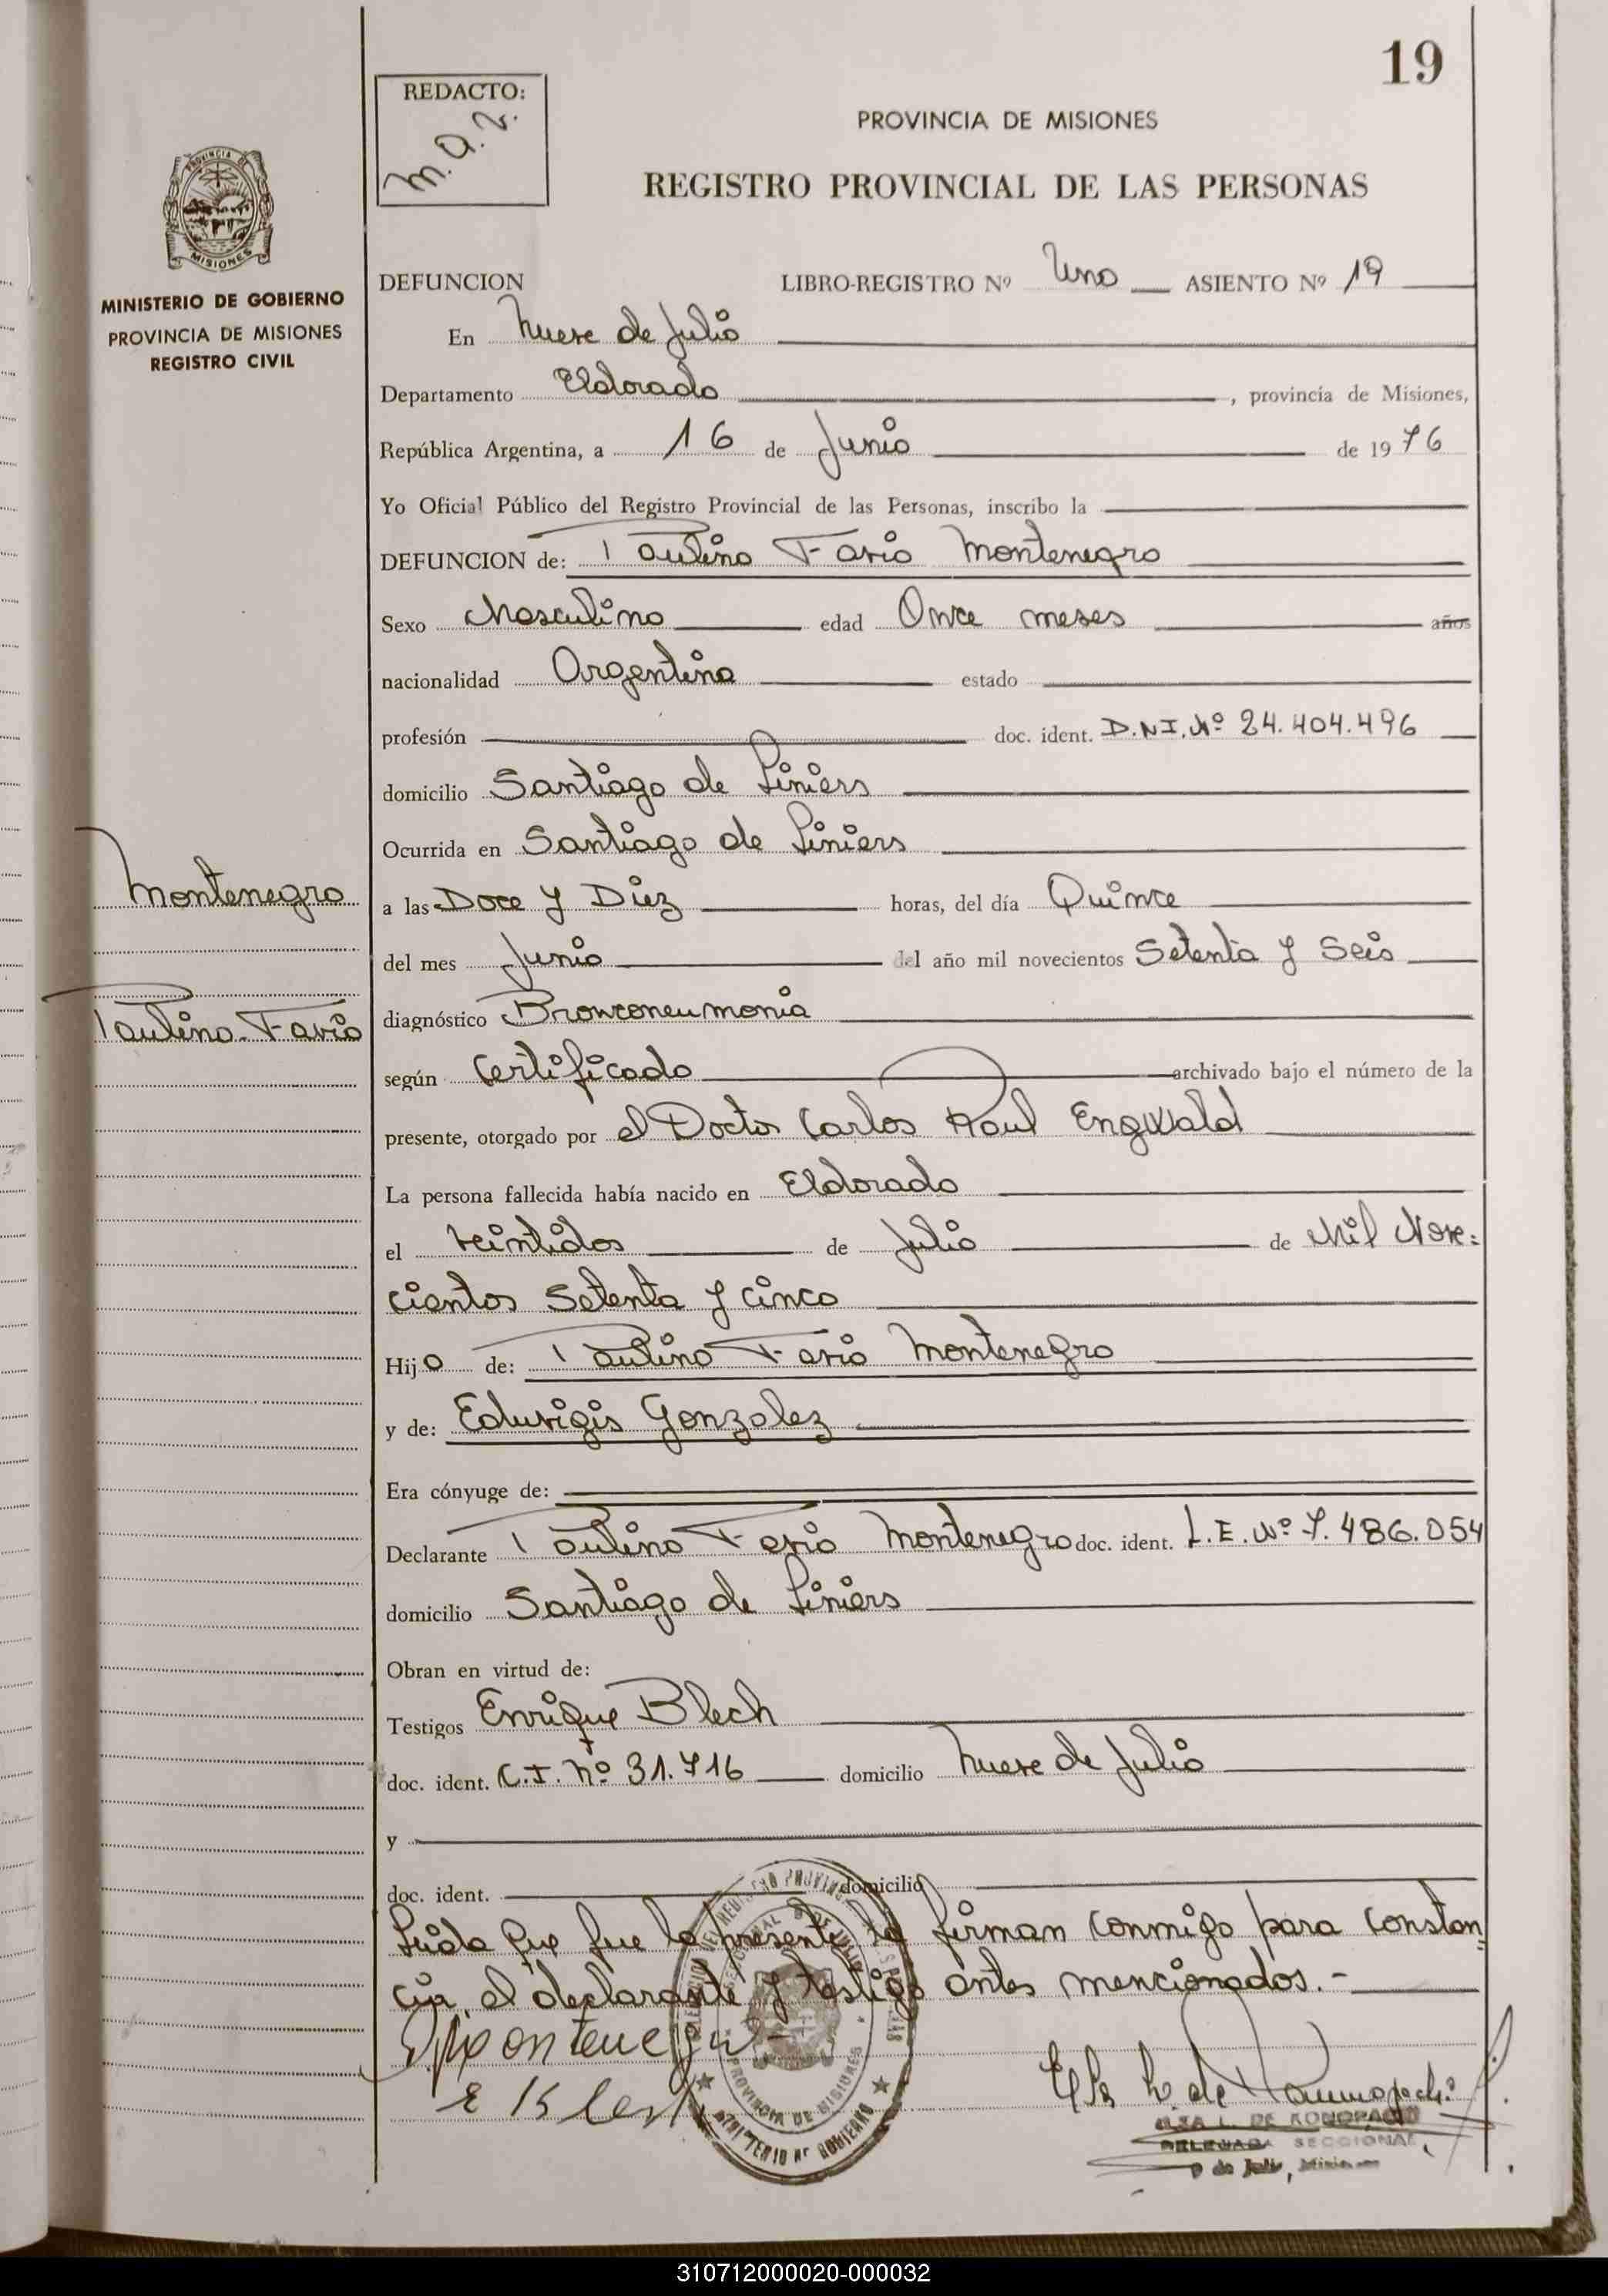 19
REDACTO:
PROVINCIA DE MISIONES
REGISTRO PROVINCIAL DE LAS PERSONAS
PROVINCIA DE
MISIONES
MINISTERIO DE GOBIERNO
PROVINCIA DE MISIONES
REGISTRO CIVIL
DEFUNCION LIBRO-REGISTRO Nº Uno ASIENTO Nº 19
En Nueve de Julio
Departamento Eldorado, provincia de Misiones,
República Argentina, a 16 de Junio de 1976
Yo Oficial Público del Registro Provincial de las Personas, inscribo la
DEFUNCION de: Paulino Favio Montenegro
Sexo Masculino edad Once meses años
nacionalidad Argentina estado
profesión doc. ident. D.N.I. Nº 24.404.496
domicilio Santiago de Liniers
Ocurrida en Santiago de Liniers
Montenegro
a las Doce y Diez horas, del día Quince
del mes Junio del año mil novecientos Setenta y Seis
Paulino Favio
diagnóstico Bronconeumonia
según Certificado archivado bajo el número de la
presente, otorgado por el Doctor Carlos Raul Engwald
La persona fallecida había nacido en Eldorado
el veintidos de Julio de Mil Nove=
cientos Setenta y cinco
Hijo de: Paulino Favio Montenegro
y de: Eduvigis Gonzalez
Era cónyuge de:
Declarante Paulino Favio Montenegro doc. ident. L.E. Nº 7.486.054
domicilio Santiago de Liniers
Obran en virtud de:
Testigos Enrique Blech
doc. ident. C.I. Nº 31.716 domicilio Nueve de Julio
y
doc. ident. domicilio
Leida que fue la presente la firman conmigo para constan=
cia, el declarante y testigo antes mencionados.-
PROVINCIA DE MISIONES
MINISTERIO DE GOBIERNO
ELSA L. DE KONOPACKI
DELEGADA SECCIONAL
9 de Julio, Misiones
310712000020-000032